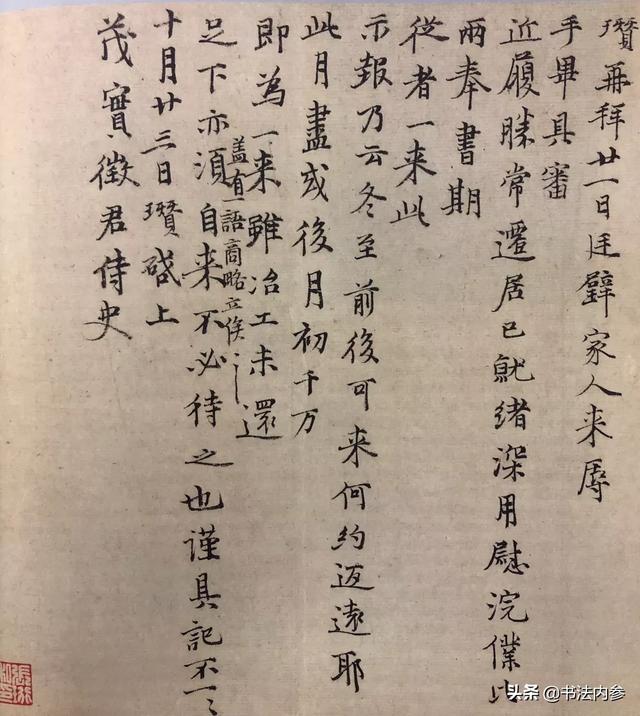 瓚再拜廿一日廷璧家人来辱
手畢具審
近履勝常遷居已就緒深用慰浣僕比
兩奉書期
從者一来此
示報乃云冬至前後可来何約迃遠耶
此月盡或後月初千万
即為一来雖冶工未還
盖有一語商略立俟〻
足下亦須自来不必待之也謹具記不一〻
十月廿三日瓚啓上
茂實徵君侍史
头条 @书法内参